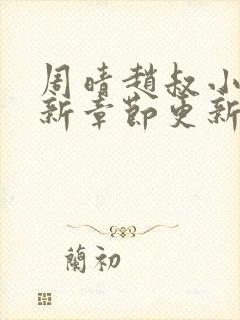 周晴趙叔小
新章節更新
蘭初